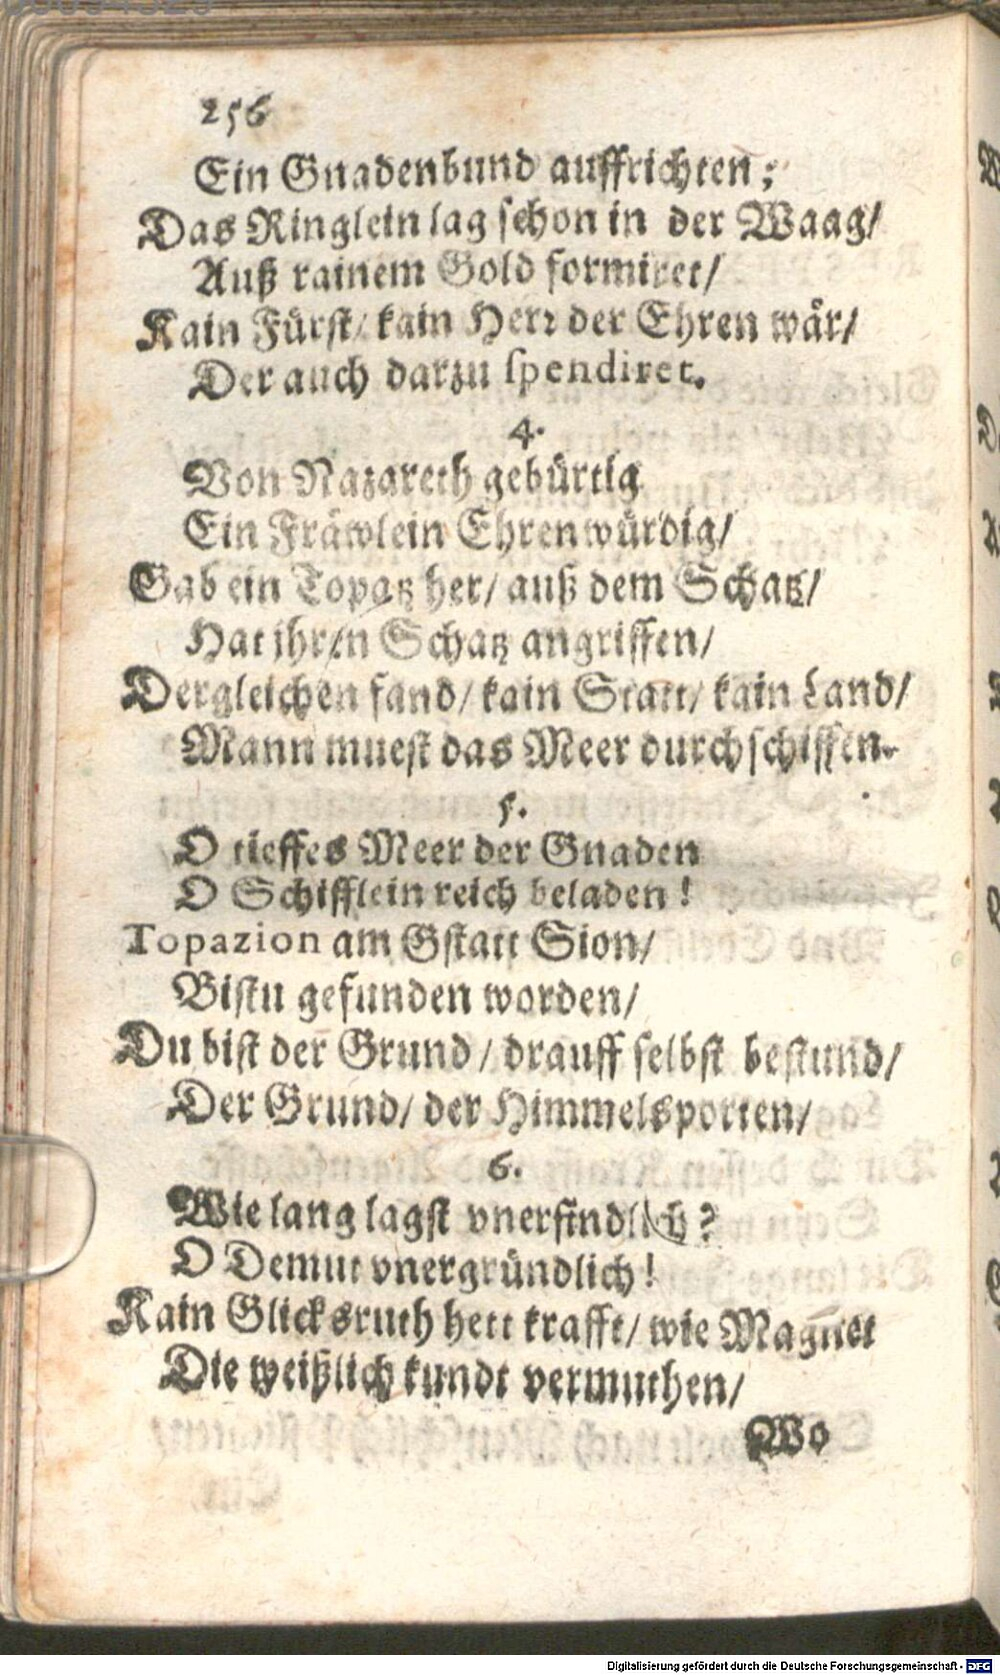 256
Ein Gnadenbund auffrichten;
Das Ringlein lag schon in der Waag/
Auß rainem Gold formiret/
Kain Fürst/ kain Herr der Ehren wär/
Der auch darzu spendiret.
4.
Von Nazareth gebürtig
Ein Fräwlein Ehrenwürdig/
Gab ein Topatz her/ auß dem Schatz/
Hat jhren Schatz angriffen/
Dergleichen fand/ kain Statt/ kain Land/
Mann muest das Meer durchschiffen.
5.
O tieffes Meer der Gnaden
O Schifflein reich beladen!
Topazion am Gstatt Sion/
Bistu gefunden worden/
Du bist der Grund/ drauff selbst bestund/
Der Grund/ der Himmelsporten/
6.
Wie lang lagst vnerfindlich?
O Demut vnergründlich!
Kain Glicksruth hett krafft/ wie Magnet
Die weißlich kundt vermuthen/
Wo
Digitalisierung gefördert durch die Deutsche Forschungsgemeinschaft - DFG